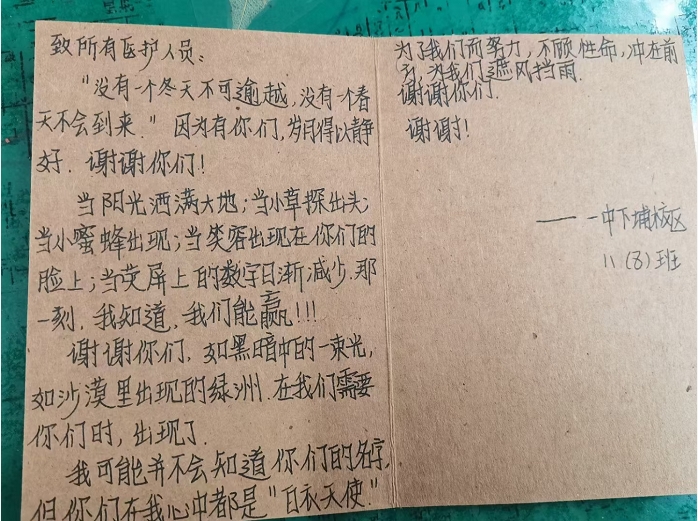 致所有医护人员：
“没有一个冬天不可逾越，没有一个春
天不会到来.”因为有你们，岁月得以静
好．谢谢你们！
当阳光洒满大地；当小草探出头；
当小蜜蜂出现；当笑容出现在你们的
脸上；当荧屏上的数字日渐减少.那
一刻．我知道，我们能赢!!!
谢谢你们，如黑暗中的一束光，
如沙漠里出现的绿洲．在我们需要
你们时，出现了．
我可能并不会知道你们的名字，
但你们在我心中都是“白衣天使.”
为了我们而努力，不顾性命，冲在前
方，为我们遮风挡雨．
谢谢你们．
谢谢！
——一中下埔校区
11（8）班